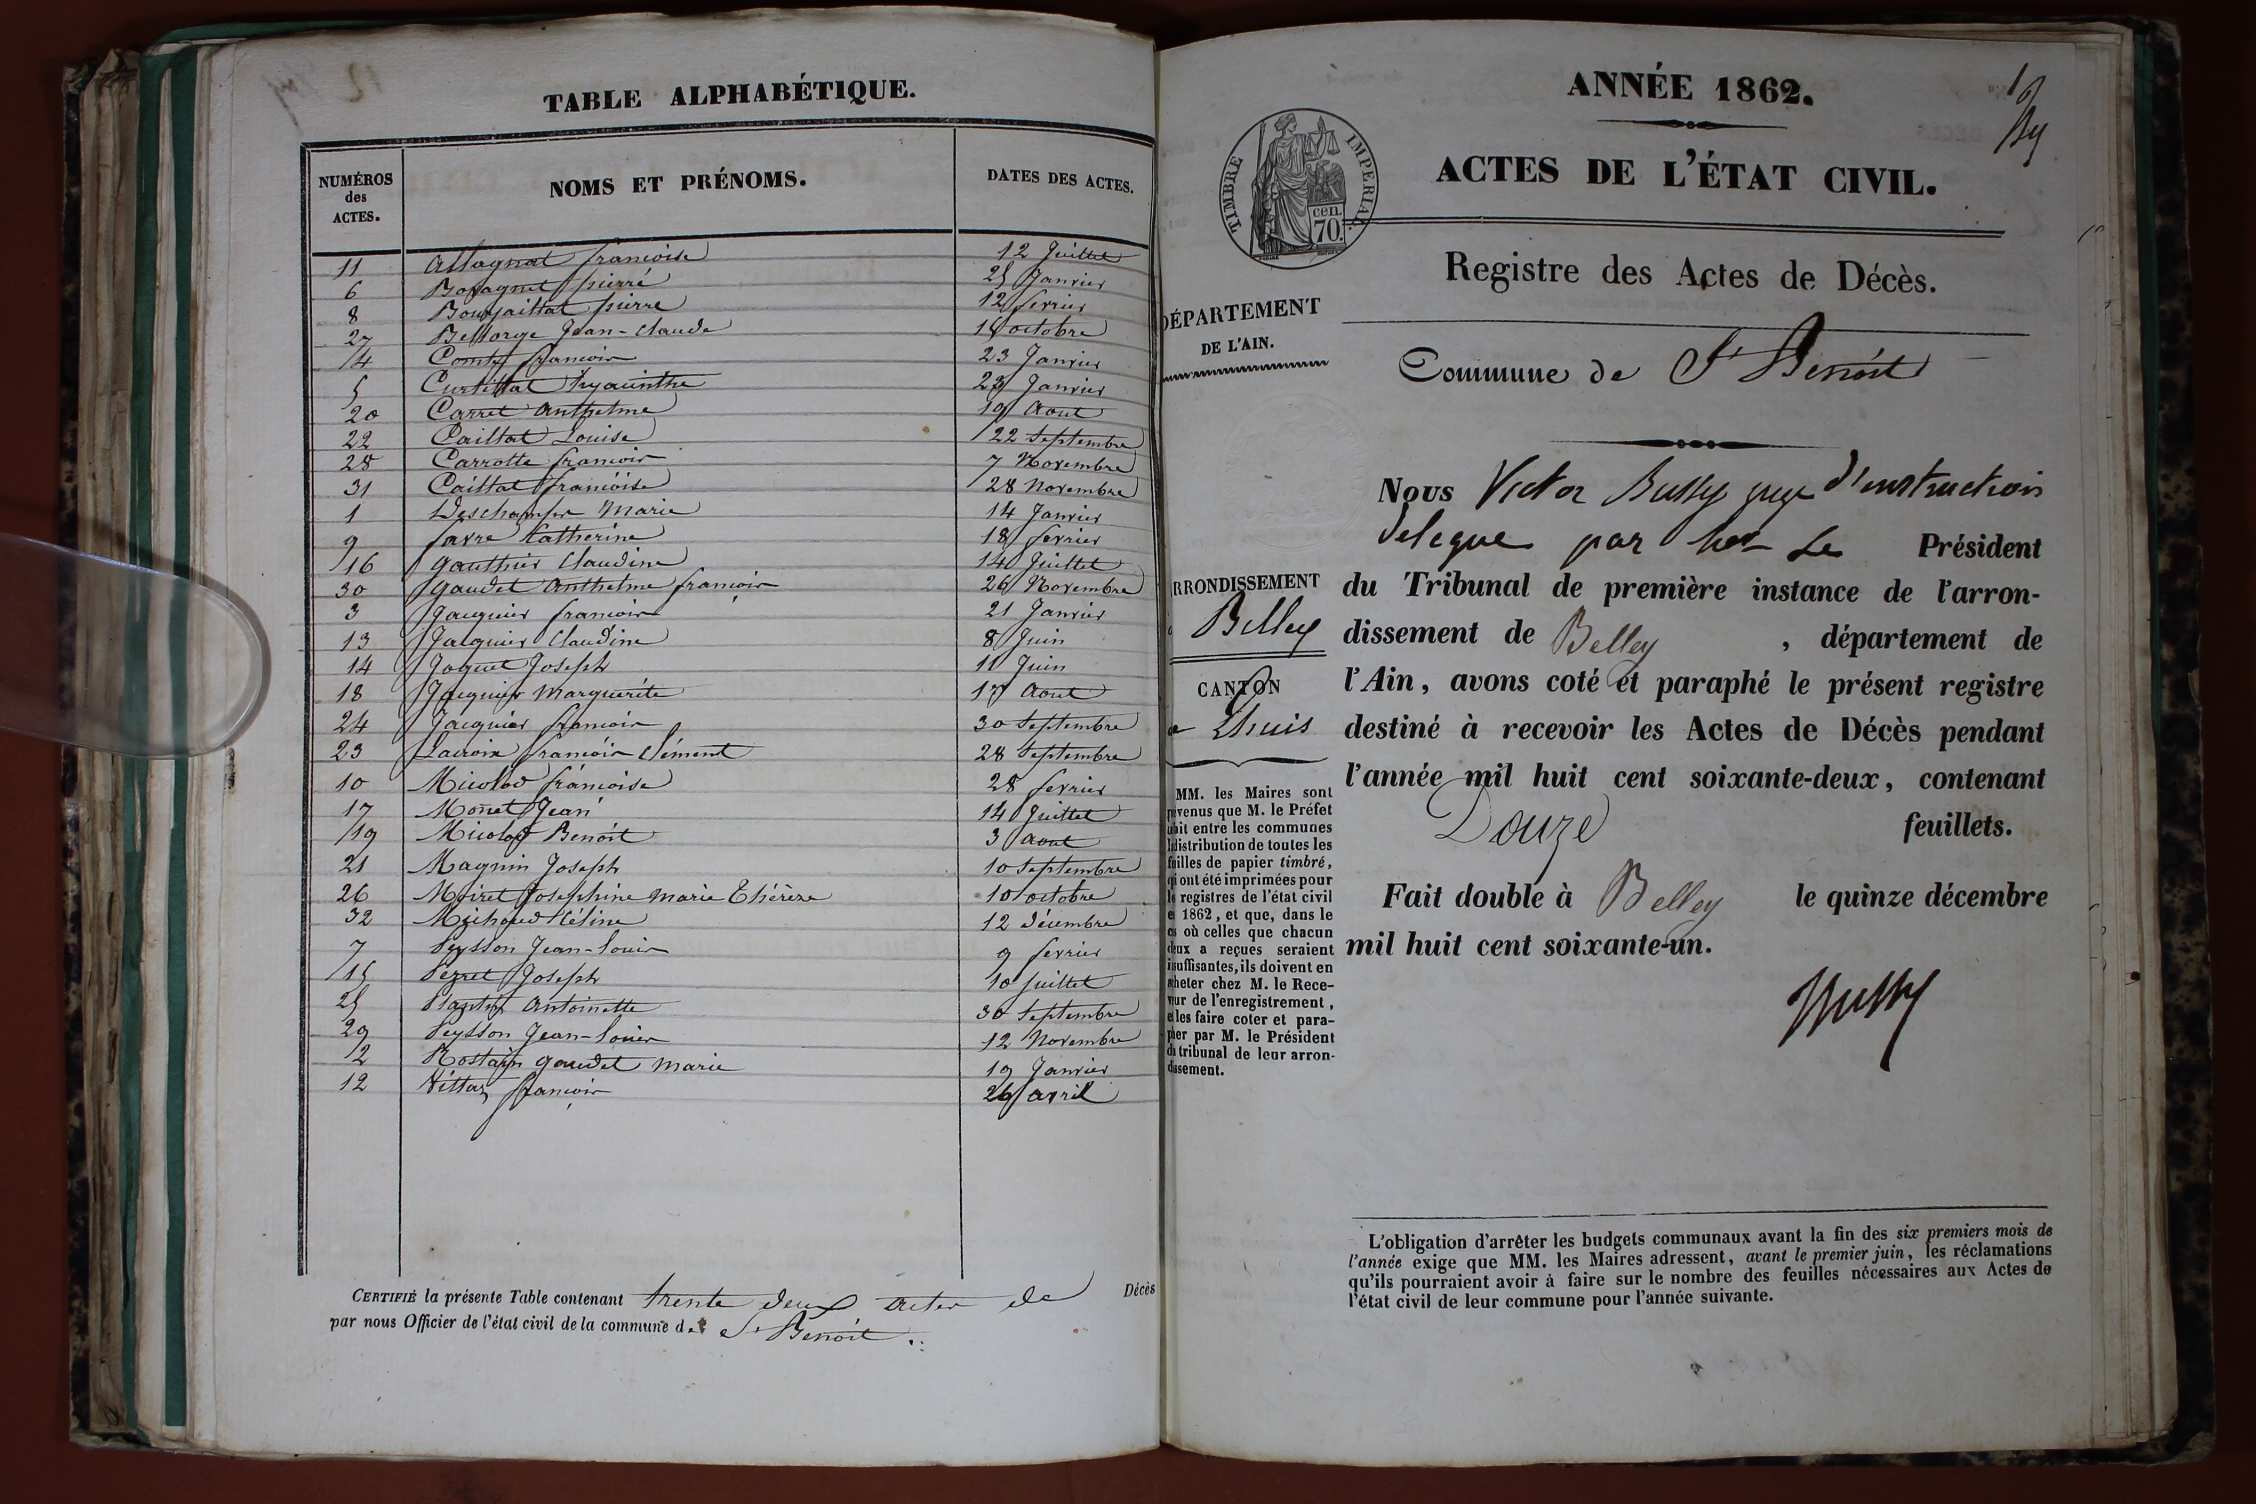 TABLE ALPHABÉTIQUE.
NUMÉROS des ACTES. NOMS ET PRÉNOMS. DATES DES ACTES.
11 Allagnat francoise 12 Juillet
6 pierre 25 Janvier
8 Bouvaillat pierre 12 fevrier
27 Bellorge Jean-Claude 15 octobre
4 Comte francois 23 Janvier
5 Curtillat hyacinthe 23 Janvier
20 Carret anthelme 19 Aout
22 Caillat Louise 22 Septembre
28 Carrotte francois 7 Novembre
31 Caillat francoise 28 Novembre
1 Deschamps Marie 14 Janvier
9 favre Catherine 18 fevrier
16 gauthier Claudine 14 Juillet
30 gaudet anthelme francois 26 Novembre
3 Jacquier francois 21 Janvier
13 Jacquier Claudine 8 Juin
14 Joguet Joseph 11 Juin
18 Jacquier Marguerite 17 Aout
24 Jacquier francois 30 Septembre
23 Lacroix francois Clément 28 Septembre
10 Micolod francoise 28 fevrier
17 Monet Jean 14 Juillet
19 Micolod Benoit 3 Aout
21 Magnin Joseph 10 Septembre
26 Moiret Josephine Marie Thérèze 10 octobre
32 Michoud 12 Décembre
7 Peysson Jean-Louis 9 fevrier
15 Joseph 10 Juillet
25 Plantin Antoinette 30 Septembre
29 Peysson Jean-Louis 12 Novembre
2 Rostain gaudet Marie 19 Janvier
12 francois 26 avril
CERTIFIÉ la présente Table contenant trente deux actes de Décès
par nous Officier de l'état civil de la commune de St Benoit
ANNÉE 1862.
TIMBRE IMPERIAL
cen.
70.
ACTES DE L'ÉTAT CIVIL.
Registre des Actes de Décès.
DÉPARTEMENT
DE L'AIN.
Commune de St Benoit
Nous Victor Bussy juge d'instruction
delegue par Président
ARRONDISSEMENT
Belley
CANTON
Lhuis
du Tribunal de première instance de l'arron-
dissement de Belley, département de
l'Ain, avons coté et paraphé le présent registre
destiné à recevoir les Actes de Décès pendant
l'année mil huit cent soixante-deux, contenant
Douze feuillets.
Fait double à Belley le quinze décembre
mil huit cent soixante-un.
Bussy
MM. les Maires sont
prévenus que M. le Préfet
fait entre les communes
distribution de toutes les
feuilles de papier timbré,
qui ont été imprimées pour
les registres de l'état civil
de 1862, et que, dans le
cas où celles que chacun
d'eux a reçues seraient
insuffisantes, ils doivent en
acheter chez M. le Rece-
veur de l'enregistrement,
et les faire coter et para-
pher par M. le Président
du tribunal de leur arron-
dissement.
L'obligation d'arrêter les budgets communaux avant la fin des six premiers mois de
l'année exige que MM. les Maires adressent, avant le premier juin, les réclamations
qu'ils pourraient avoir à faire sur le nombre des feuilles nécessaires aux Actes de
l'état civil de leur commune pour l'année suivante.